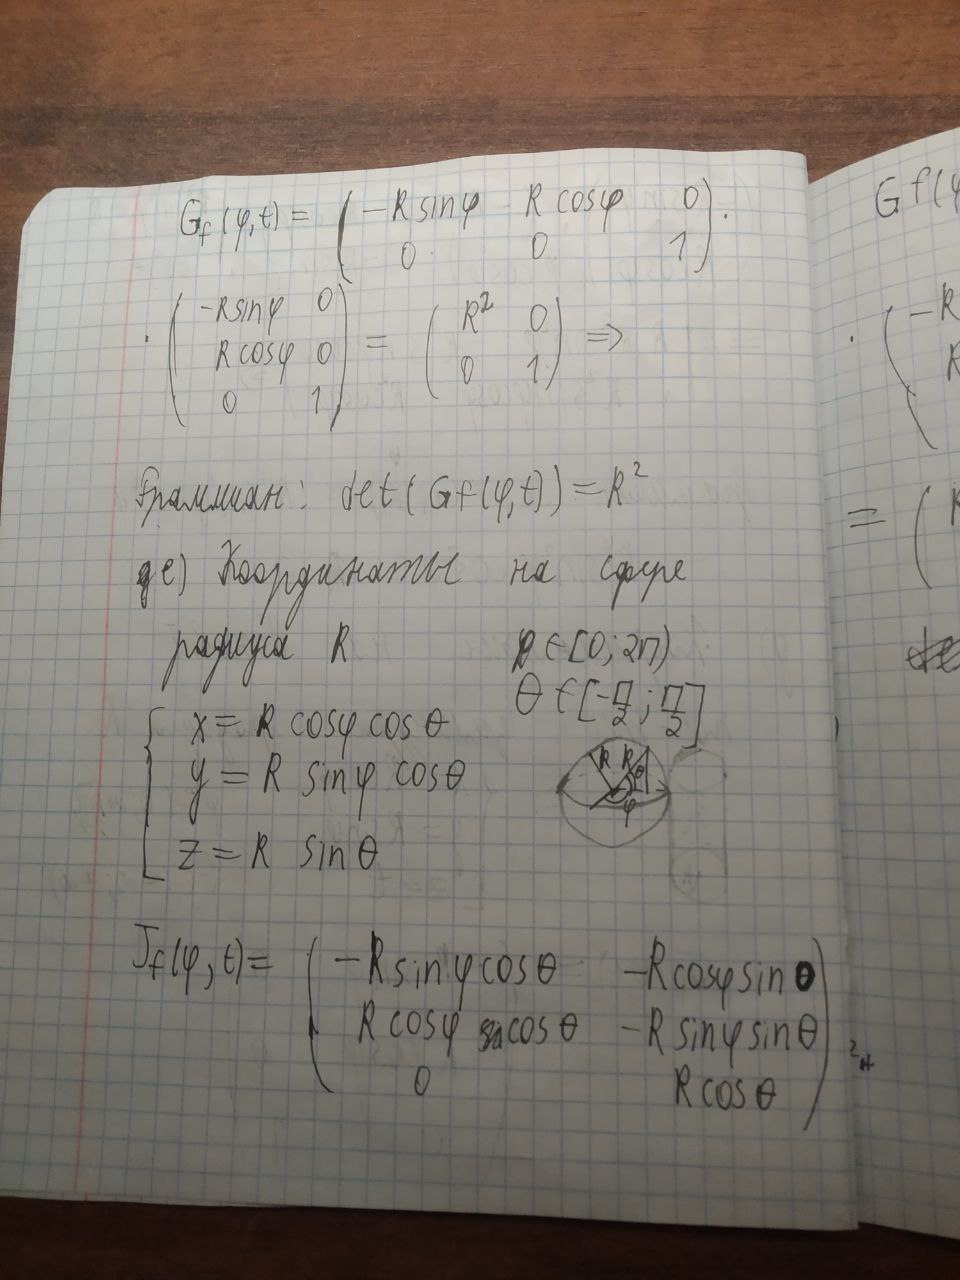 G_f(φ,t) = ( -R sinφ R cosφ 0 ) ·
0 0 1
· ( -R sinφ 0 ) = ( R² 0 ) ⇒
R cosφ 0 0 1
0 1
Грамміан: det(Gf(φ,t)) = R²
де) Координаты на сфере
радиуса R φ ∈ [0; 2π)
θ ∈ [-π/2; π/2]
x = R cosφ cosθ
y = R sinφ cosθ
z = R sinθ
R R θ
φ
J_f(φ,t) = ( -R sinφ cosθ -R cosφ sinθ )
R cosφ cosθ -R sinφ sinθ
0 R cosθ
G f(φ
· ( -R
R
= ( R